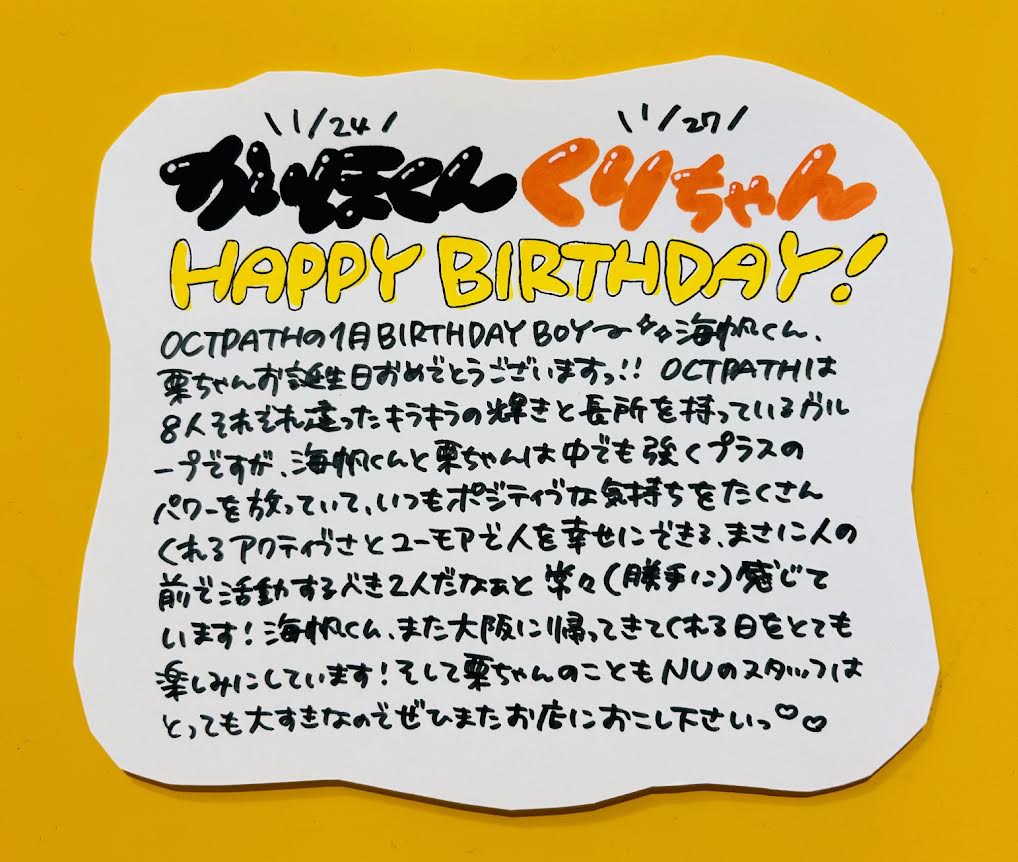 \1/24/ \1/27/
かいほくん くりちゃん
HAPPY BIRTHDAY!
OCTPATHの1月BIRTHDAY BOY〜✨海帆くん、
栗ちゃんお誕生日おめでとうございますっ!! OCTPATHは
8人それぞれ違ったキラキラの輝きと長所を持っているグル
ープですが、海帆くんと栗ちゃんは中でも強くプラスの
パワーを放っていて、いつもポジティヴな気持ちをたくさん
くれるアクティヴさとユーモアで人を幸せにできる、まさに人の
前で活動するべき2人だなぁと常々(勝手に)感じて
います!海帆くん、また大阪に帰ってきてくれる日をとても
楽しみにしています!そして栗ちゃんのこともNUのスタッフは
とっても大すきなのでぜひまたお店におこし下さいっ♡♡